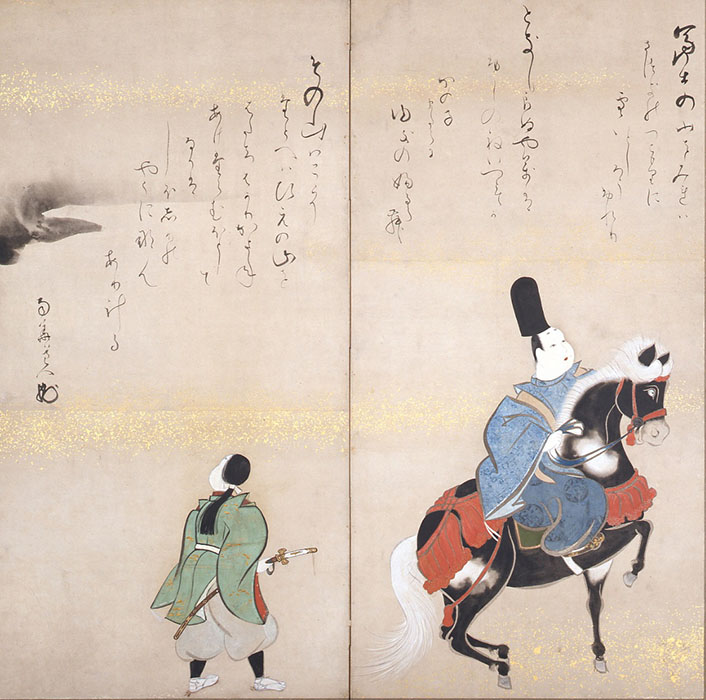 富士の山をみれは
さ月のつこもりに
雪いとしろう
ふれり
時しらぬやまは
ふしのねいつとてか
かのこ
またらに
ゆきのふるらん
その山はここに
たとへはひえの山を
はたちはかりかさね
あけたらむほとして
なりは
しほしりの
やうになん
ありける